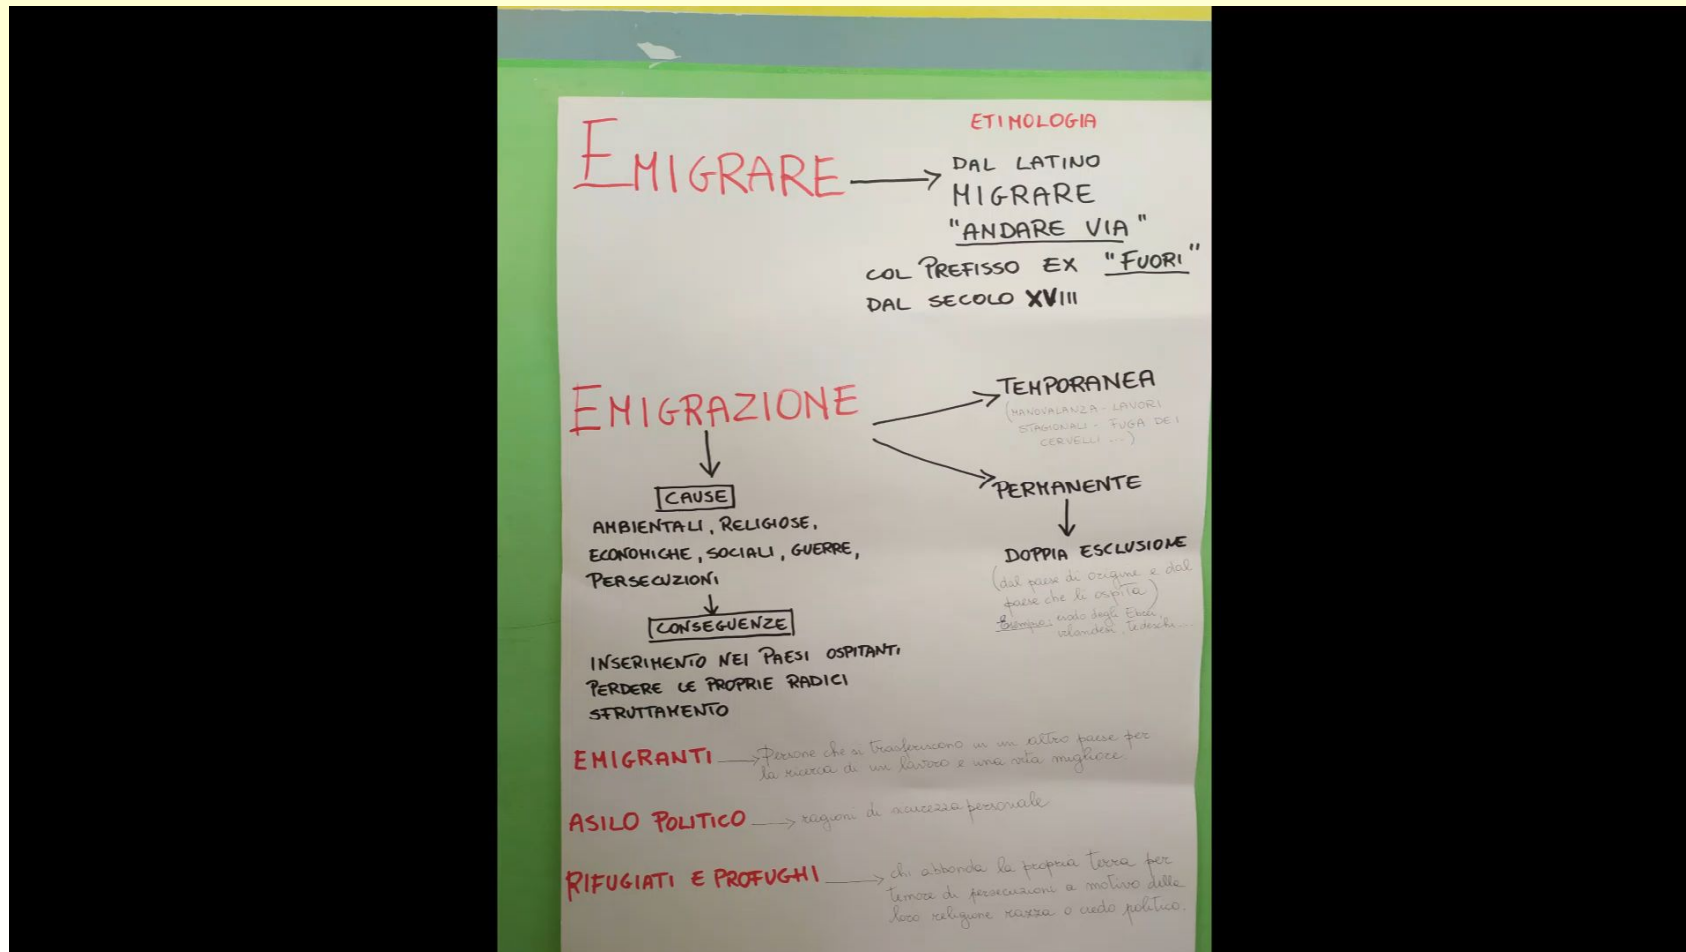 EMIGRARE
ETIMOLOGIA
DAL LATINO
MIGRARE
"ANDARE VIA"
COL PREFISSO EX "FUORI"
DAL SECOLO XVIII
EMIGRAZIONE
TEMPORANEA
(MANOVALANZA - LAVORI
STAGIONALI - FUGA DEI
CERVELLI ....)
PERMANENTE
DOPPIA ESCLUSIONE
(dal paese di origine e dal
paese che li ospita)
Esempio: esodo degli Ebrei,
irlandesi, tedeschi....
CAUSE
AMBIENTALI, RELIGIOSE,
ECONOMICHE, SOCIALI, GUERRE,
PERSECUZIONI
CONSEGUENZE
INSERIMENTO NEI PAESI OSPITANTI
PERDERE LE PROPRIE RADICI
SFRUTTAMENTO
EMIGRANTI
Persone che si trasferiscono in un altro paese per
la ricerca di un lavoro e una vita migliore.
ASILO POLITICO
ragioni di sicurezza personale
RIFUGIATI E PROFUGHI
chi abbonda la propria terra per
temore di persecuzioni a motivo della
loro religione razza o credo politico.